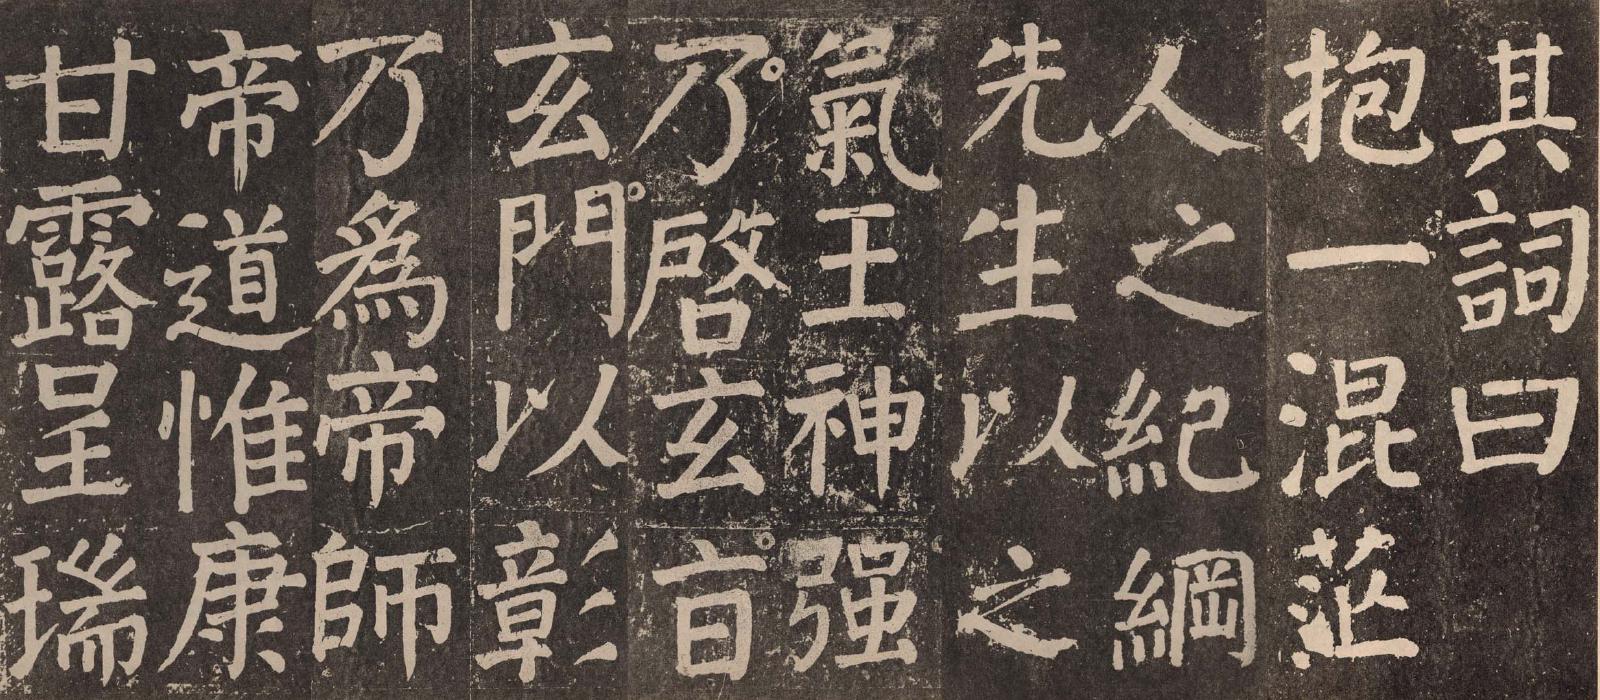 其詞曰
抱一混茫
人之紀綱
先生以之
氣王神强
乃啓玄㫖
玄門以彰
乃爲帝師
帝道惟康
甘露呈瑞